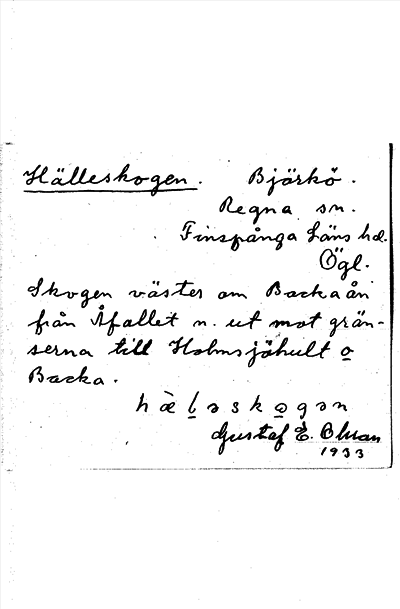 Hälleskogen. Björkö.
Regna sn.
Finspånga Läns hd.
Ögl.
Skogen väster om Backaån
från Åfallet n. ut mot grän-
serna till Holmsjöhult o
Backa.
hæ̀l̠əsko̠gən
Gustaf E. Blman
1933